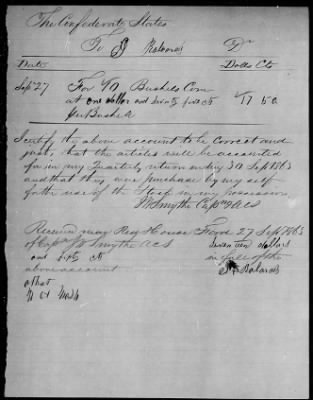 The Confederate States
To J Roland Dr
Date Dolls Cts
Sept 27 For 10 Bushels Corn
at one dollar and seventy five cts 17 50
per Bushel
I certify the above account to be correct and
just, that the articles will be accounted
for in my Quarterly return ending 30 Sept 1863
and that they were purchase by my self
for the use of the Stock in my possession
Smythe Capt ACS
Received may 27 Sept 1863
of Capt Smythe ACS seventeen dollars
and fifty cts in full of the
above account